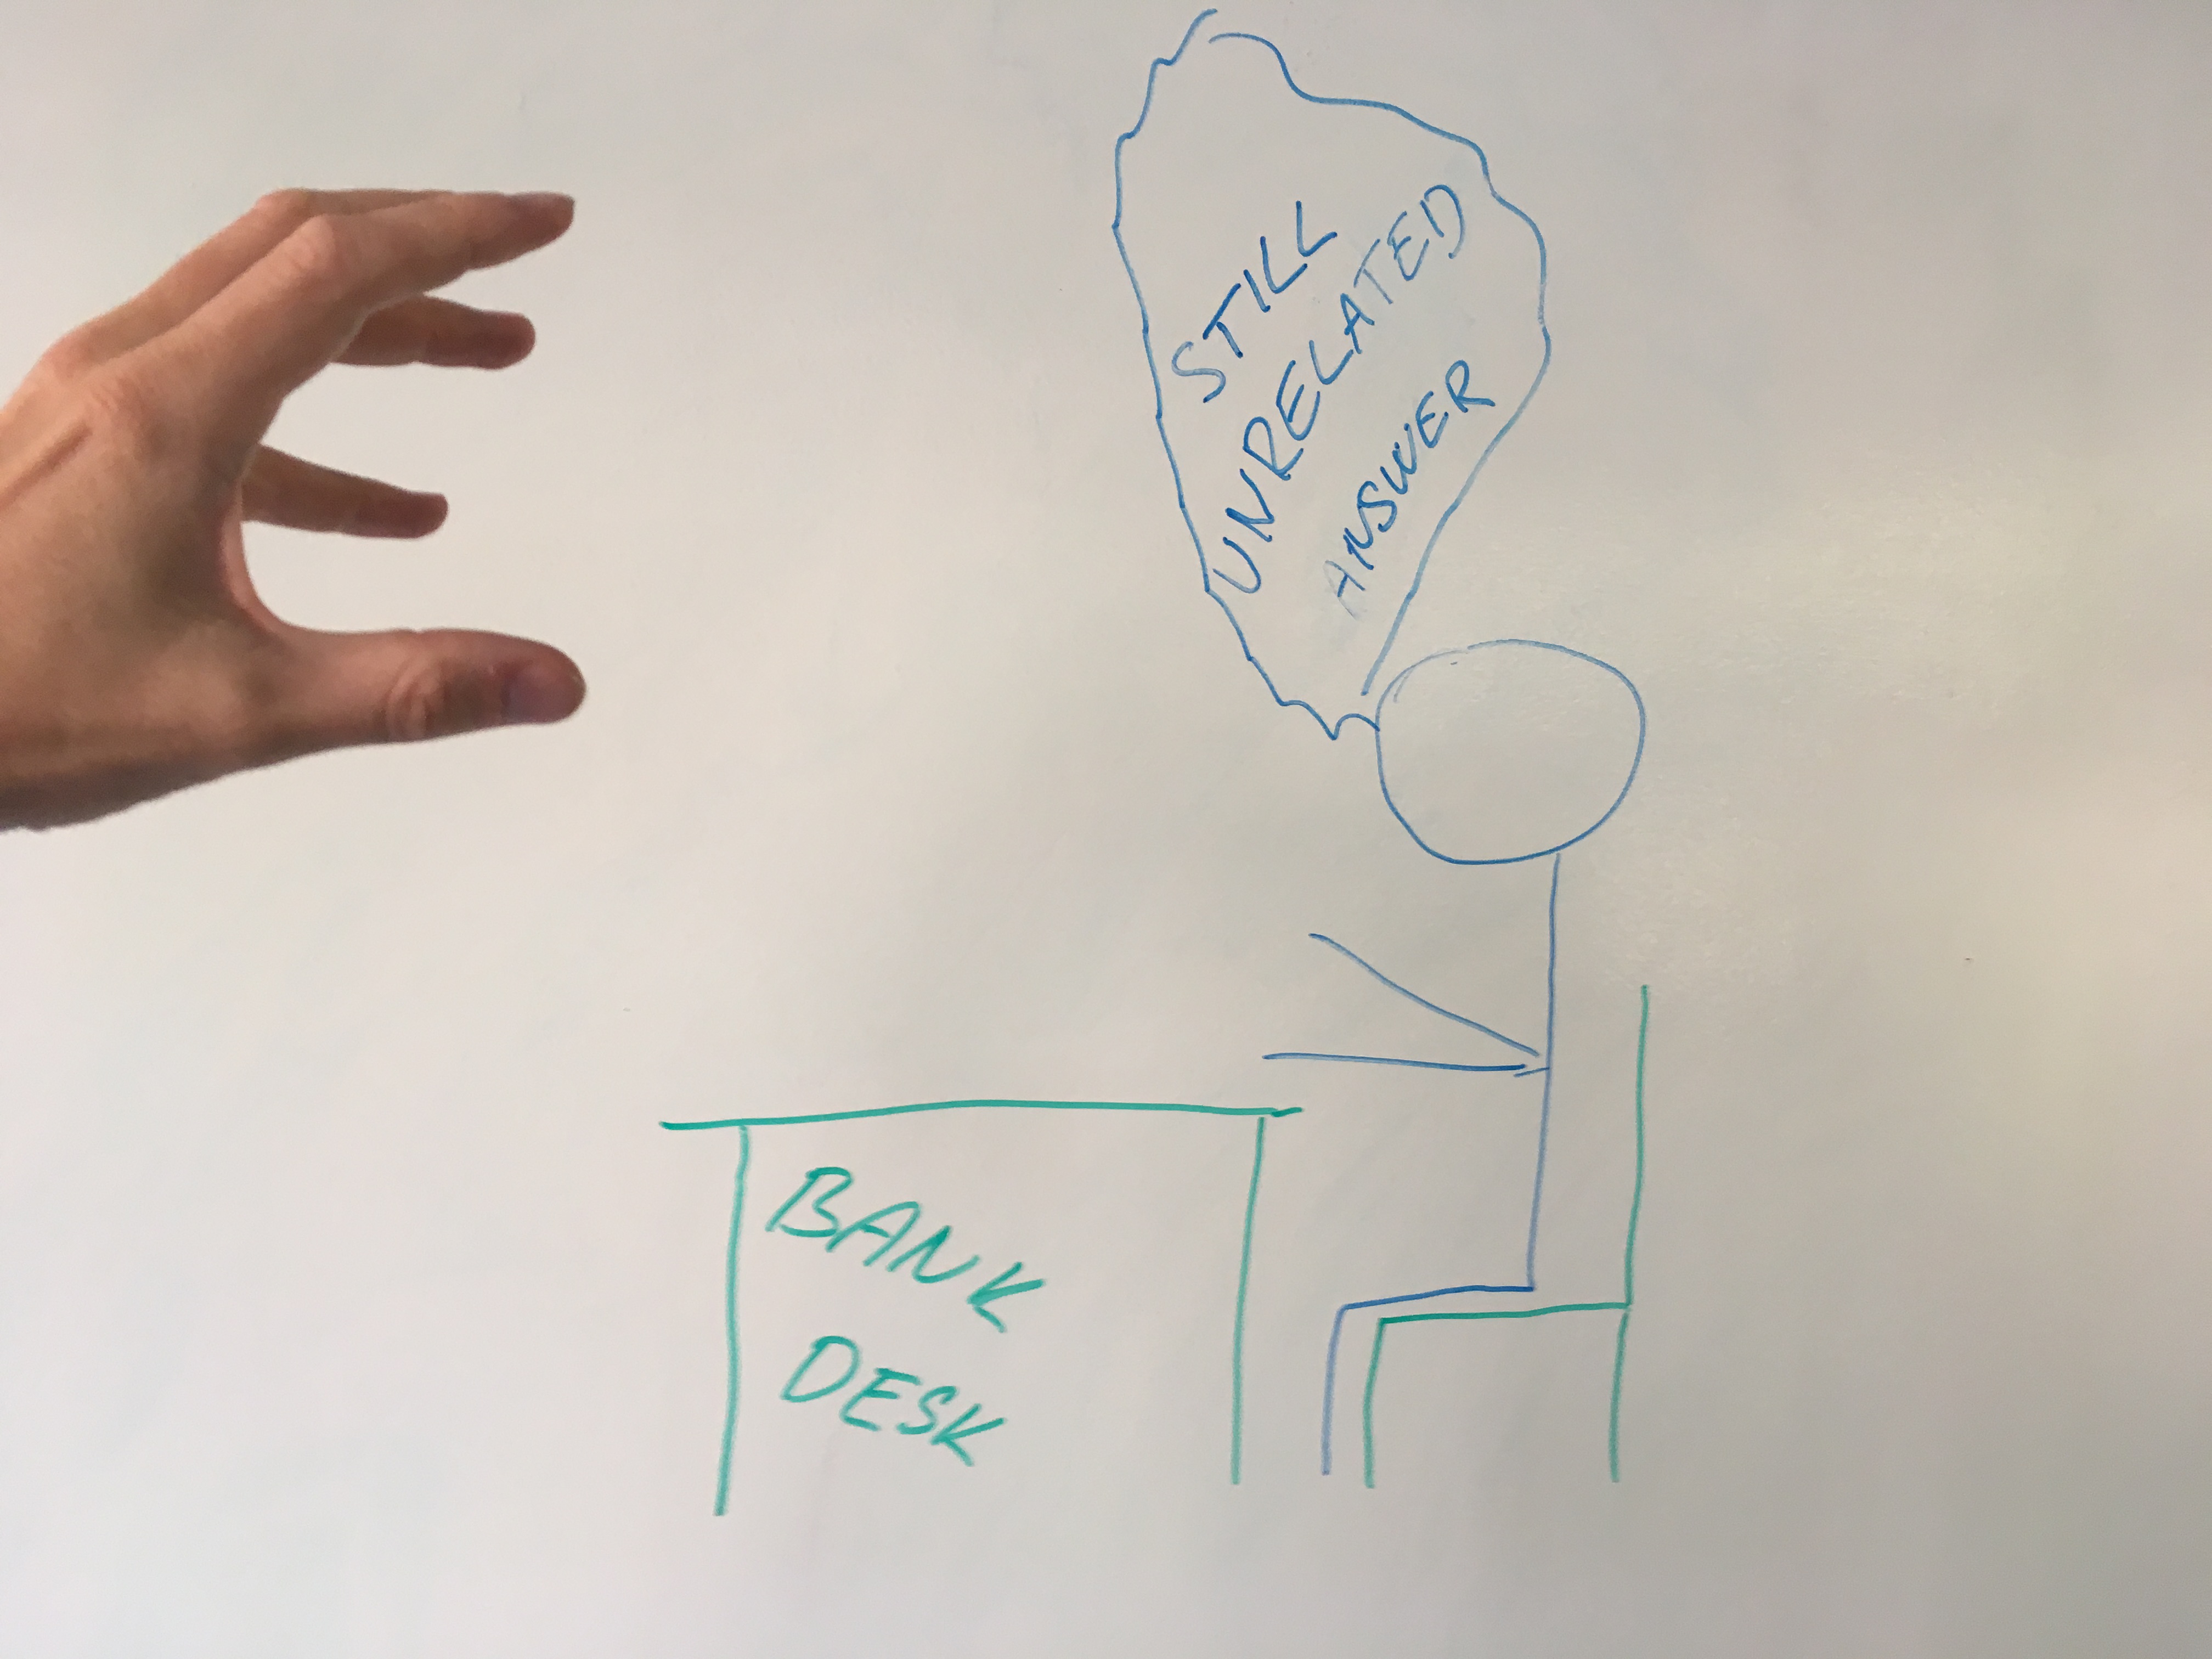 STILL
UNRELATED
ANSWER
BANK
DESK